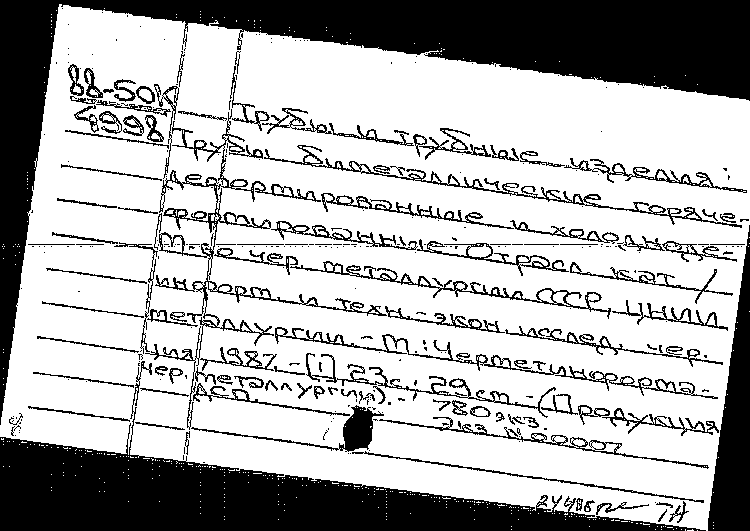 88-50К
4998
Трубы и трубные изделия:
Трубы биметаллические горяче-
деформированные и холодноде-
формированные: Отрасл. кат. /
М-во чер. металлургии СССР, ЦНИИ
информ. и техн.-экон. исслед. чер.
металлургии. - М.: Черметинформа-
ция, 1987. - [1], 23 с.; 29 см. - (Продукция
чер. металлургии). - 780 экз.
ДСП. Экз. N 00007
ТА